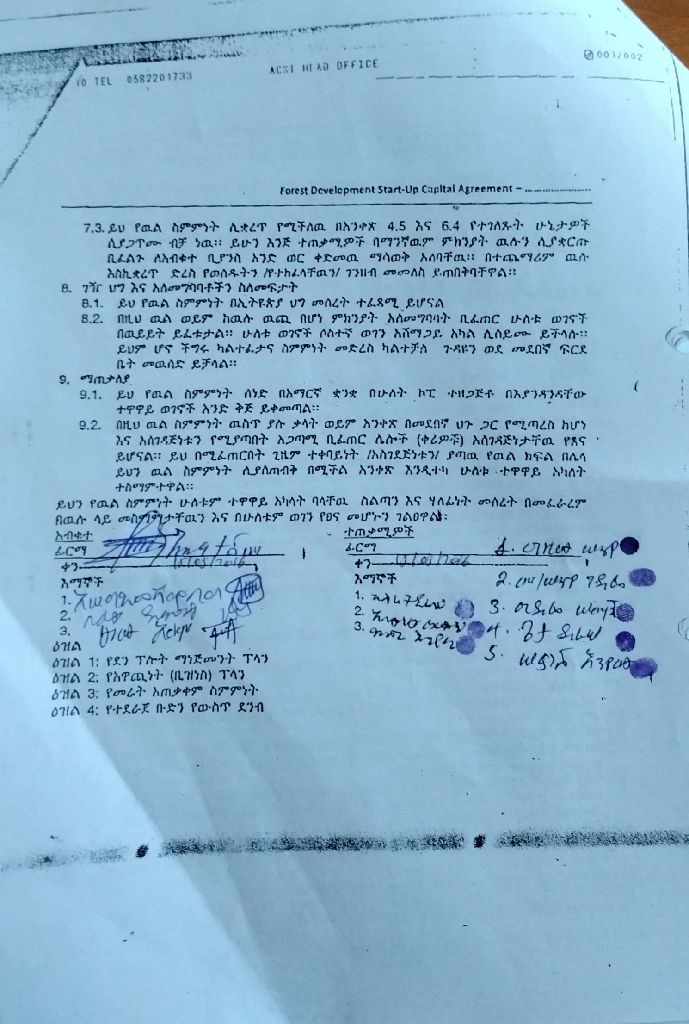 TO TEL 0582201733 ACSI HEAD OFFICE 001/002
Forest Development Start-Up Capital Agreement –
7.3. ይህ የዉል ስምምነት ሊቋረጥ የሚችለዉ በአንቀጽ 4.5 እና 6.4 የተገለጹት ሁኔታዎች
ሲያጋጥሙ ብቻ ነዉ፡፡ ይሁን እንጅ ተጠቃሚዎች በማንኛዉም ምክንያት ዉሉን ሲያቋርጡ
ቢፈልጉ ለአብቁተ ቢያንስ አንድ ወር ቀድመዉ ማሳወቅ አለባቸዉ፡፡ በተጨማሪም ዉሉ
እስኪቋረጥ ድረስ የወሰዱትን /የተከፈላቸዉን/ ገንዘብ መመለስ ይጠበቅባቸዋል፡፡
8. ገዥ ህግ እና አለመግባባቶችን ስለመፍታት
8.1. ይህ የዉል ስምምነት በኢትዮጵያ ህግ መሰረት ተፈጻሚ ይሆናል
8.2. በዚህ ዉል ወይም ከዉሉ ዉጪ በሆነ ምክንያት አለመግባባት ቢፈጠር ሁለቱ ወገኖች
በዉይይት ይፈቱታል፡፡ ሁለቱ ወገኖች ሶስተኛ ወገን አሸማጋይ አካል ሊሰይሙ ይችላሉ፡፡
ይህም ሆኖ ችግሩ ካልተፈታና ስምምነት መድረስ ካልተቻለ ጉዳዩን ወደ መደበኛ ፍርድ
ቤት መዉሰድ ይቻላል፡፡
9. ማጠቃለያ
9.1. ይህ የዉል ስምምነት ሰነድ በአማርኛ ቋንቋ በሁለት ኮፒ ተዘጋጅቶ በእያንዳንዳቸው
ተዋዋይ ወገኖች አንድ ቅጅ ይቀመጣል፡፡
9.2. በዚህ ዉል ስምምነት ዉስጥ ያሉ ቃላት ወይም አንቀጽ በመደበኛ ህጉ ጋር የሚጣረስ ከሆነ
እና አስገዳጅነቱን የሚያጣበት አጋጣሚ ቢፈጠር ሌሎች (ቀሪዎች) አስገዳጅነታቸዉ የጸና
ይሆናል፡፡ ይህ በሚፈጠርበት ጊዜም ተቀባይነት /አስገደጅነቱን/ ያጣዉ የዉል ክፍል በሌላ
ይህን ዉል ስምምነት ሊያስጠብቅ በሚችል አንቀጽ እንዲተካ ሁለቱ ተዋዋይ አካላት
ተስማምተዋል፡፡
ይህን የዉል ስምምነት ሁለቱም ተዋዋይ አካላት ባላቸዉ ስልጣን እና ሃላፊነት መሰረት በመፈራረም
በዉሉ ላይ መስማማታቸዉን እና በሁለቱም ወገን የፀና መሆኑን ገልፀዋል፡፡
አብቁተ
ፊርማ
ቀን
እማኞች
1.
2.
3.
ተጠቃሚዎች
ፊርማ 1.
ቀን
እማኞች 2.
1. 3.
2. 4.
3. 5.
ዕዝል
ዕዝል 1: የደን ፕሎት ማነጅመንት ፕላን
ዕዝል 2: የአዋጪነት (ቢዝነስ) ፕላን
ዕዝል 3: የመሬት አጠቃቀም ስምምነት
ዕዝል 4: የተደራጀ ቡድን የውስጥ ደንብ